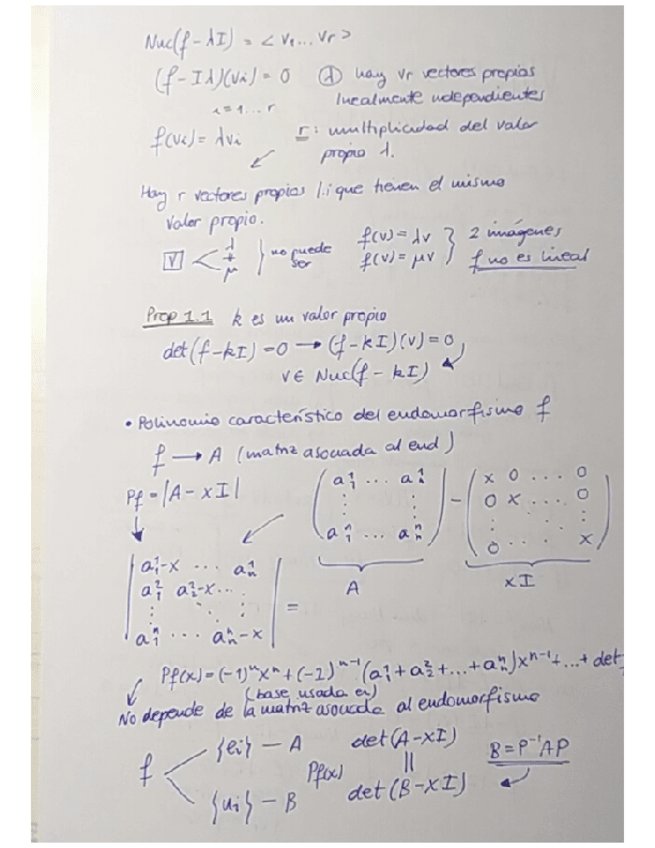 Nuc(f - λI) = < v₁ ... vr >
(f - Iλ)(vi) = 0 (λ) hay vr vectores propios
i = 1 ... r linealmente independientes
f(vi) = λvi r: multiplicidad del valor
propio λ.
Hay r vectores propios l.i que tienen el mismo
valor propio.
V < λ ≠ μ } no puede ser f(v) = λv f(v) = μv } 2 imágenes f no es lineal
Prop 1.1 k es un valor propio
det(f - kI) = 0 → (f - kI)(v) = 0
v ∈ Nuc(f - kI)
• Polinomio característico del endomorfismo f
f → A (matriz asociada al end)
Pf = |A - xI|
( a¹₁ ... a¹ₙ ) - ( x 0 ... 0 )
( ⋮ ⋮ ) ( 0 x ... 0 )
( aⁿ₁ ... aⁿₙ ) ( 0 ... x )
A xI
| a¹₁-x ... a¹ₙ |
| a²₁ a²₂-x ... | =
| ⋮ ⋮ |
| aⁿ₁ ... aⁿₙ-x |
Pf(x) = (-1)ⁿxⁿ + (-1)ⁿ⁻¹ (a¹₁ + a²₂ + ... + aⁿₙ)xⁿ⁻¹ + ... + det
(base usada en)
No depende de la matriz asociada al endomorfismo
f < {ei} — A det(A - xI)
Pf(x) || B = P⁻¹AP
{ui} — B det(B - xI)